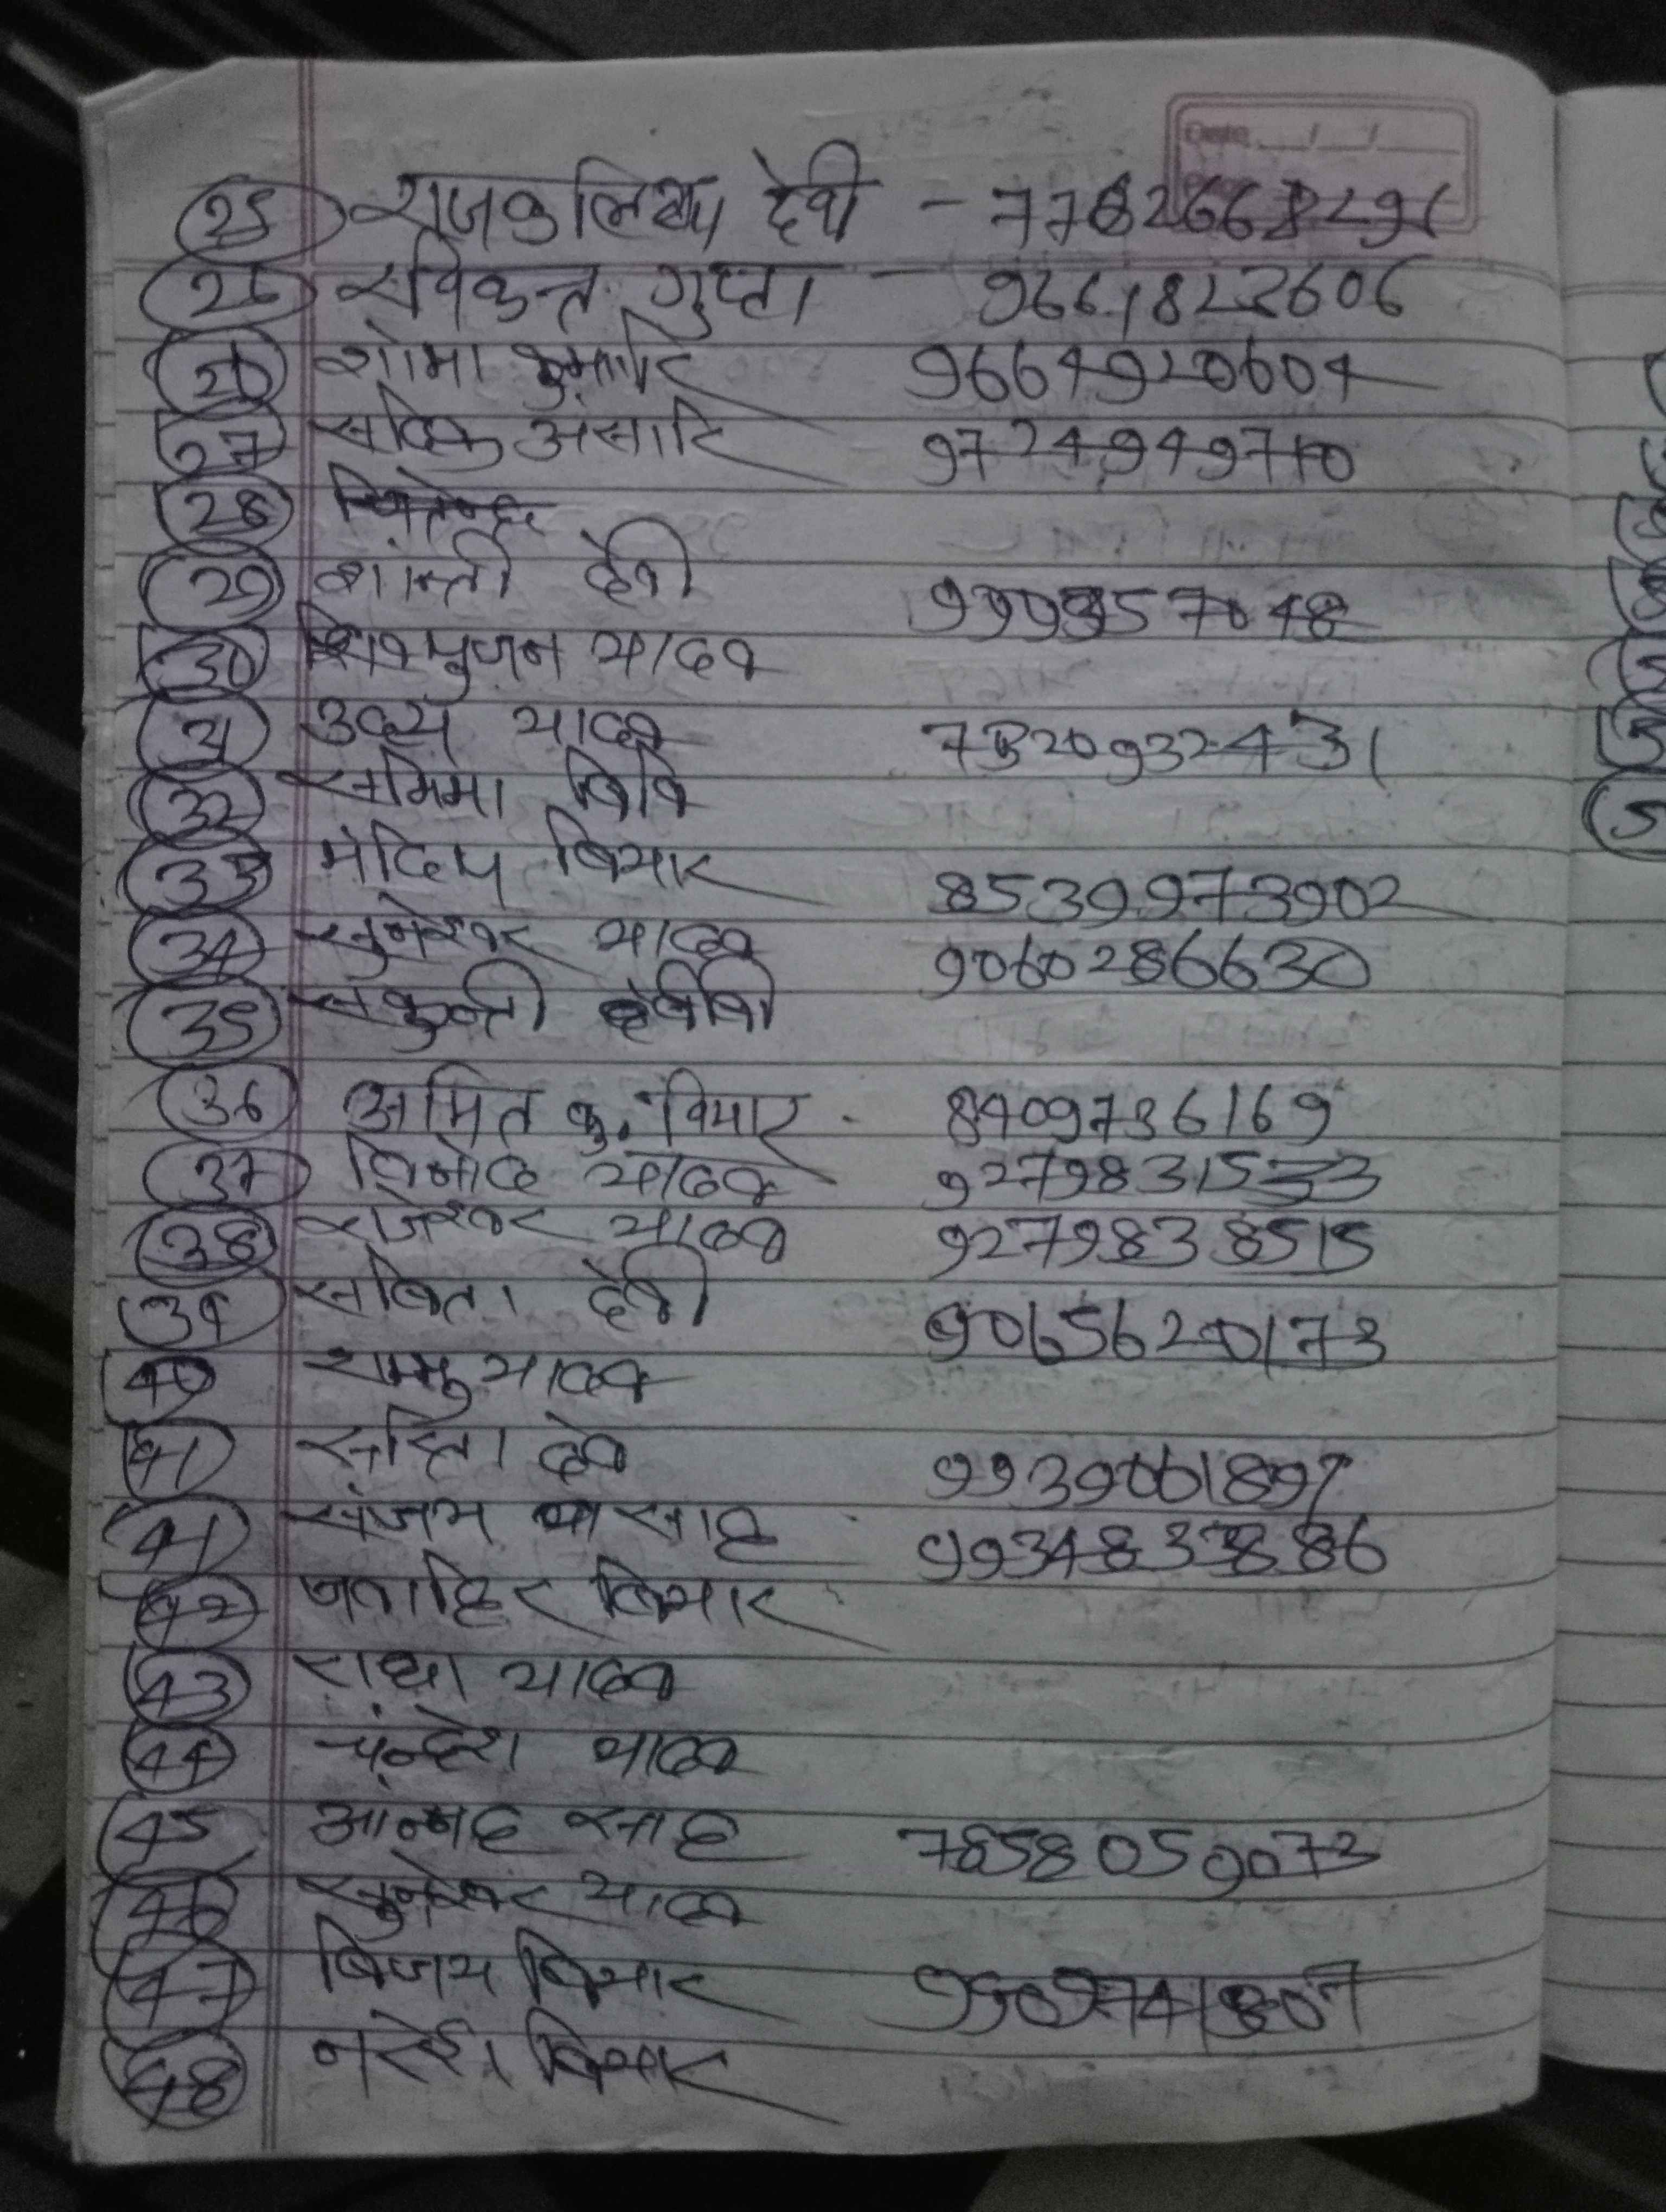 Date ___/___/______
25 राजकलिया देवी -
26 रविकन्त गुप्ता - 9661822606
26 शोभा कुमारि 9664920604
27 सदिक अंसारि 9724949710
28
29 शान्ती देवी 9909357048
30 शिवपुजन यादव
31 उदय यादव 7320932431
32 समिमा बिवि
33 मंदिप बियार 8539973902
34 भुनेश्वर यादव 9060286630
35 सकुन्ती देवी
36 अमित कु. वियार - 8409736169
37 विनोद यादव 9279831533
38 राजेश्वर यादव 9279838515
39 सबिता देवी 9065620173
40 शम्भु यादव
41 सरिता देवी
41 संजय साह 9934833886
42 जवाहिर बियार
43 राधा यादव
44 चंन्द्रेश यादव
45 आन्नद साह
46 भुनेश्वर यादव
47 बिजय बियार
48 नरेश बियार